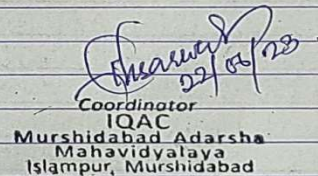 22/06/23
Coordinator
IQAC
Murshidabad Adarsha
Mahavidyalaya
Islampur, Murshidabad